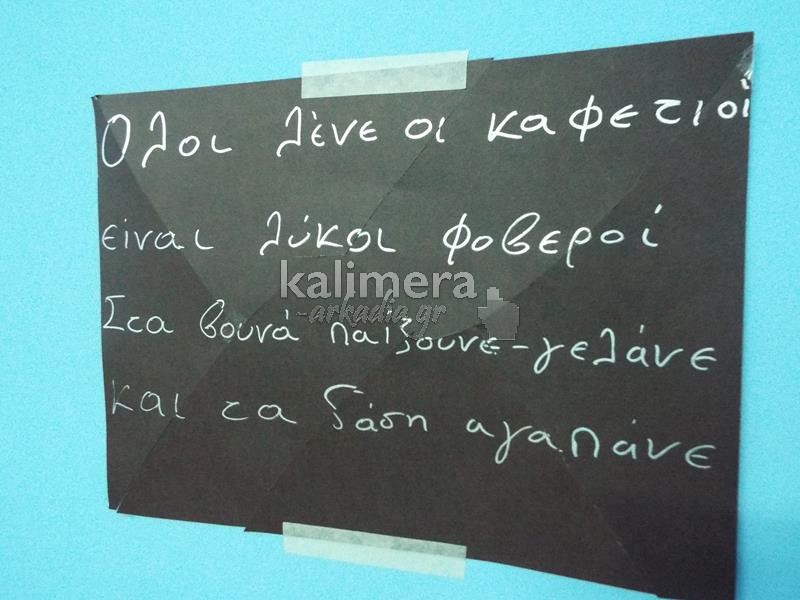 Ολοι λένε οι καφετιοί
είναι λύκοι φοβεροί
kalimera
-arkadia.gr
Στα βουνά παίζουνε-γελάνε
και τα δάση αγαπάνε